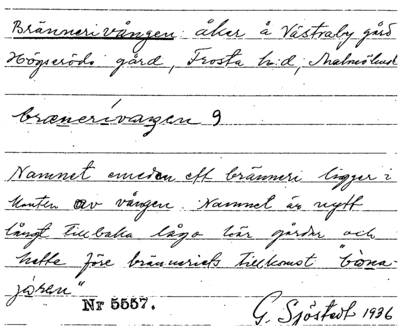 Brännerivången: åker å Västraby gård
Högseröds gård, Frosta h:d, Malmöhus l
brænerivaŋen 9
Namnet emedan ett bränneri ligger i
kanten av vången. Namnet är nytt
långt tillbaka låga här gårdar och
hette före bränneriets tillkomst "
Nr 5557.
G. Sjöstedt 1936